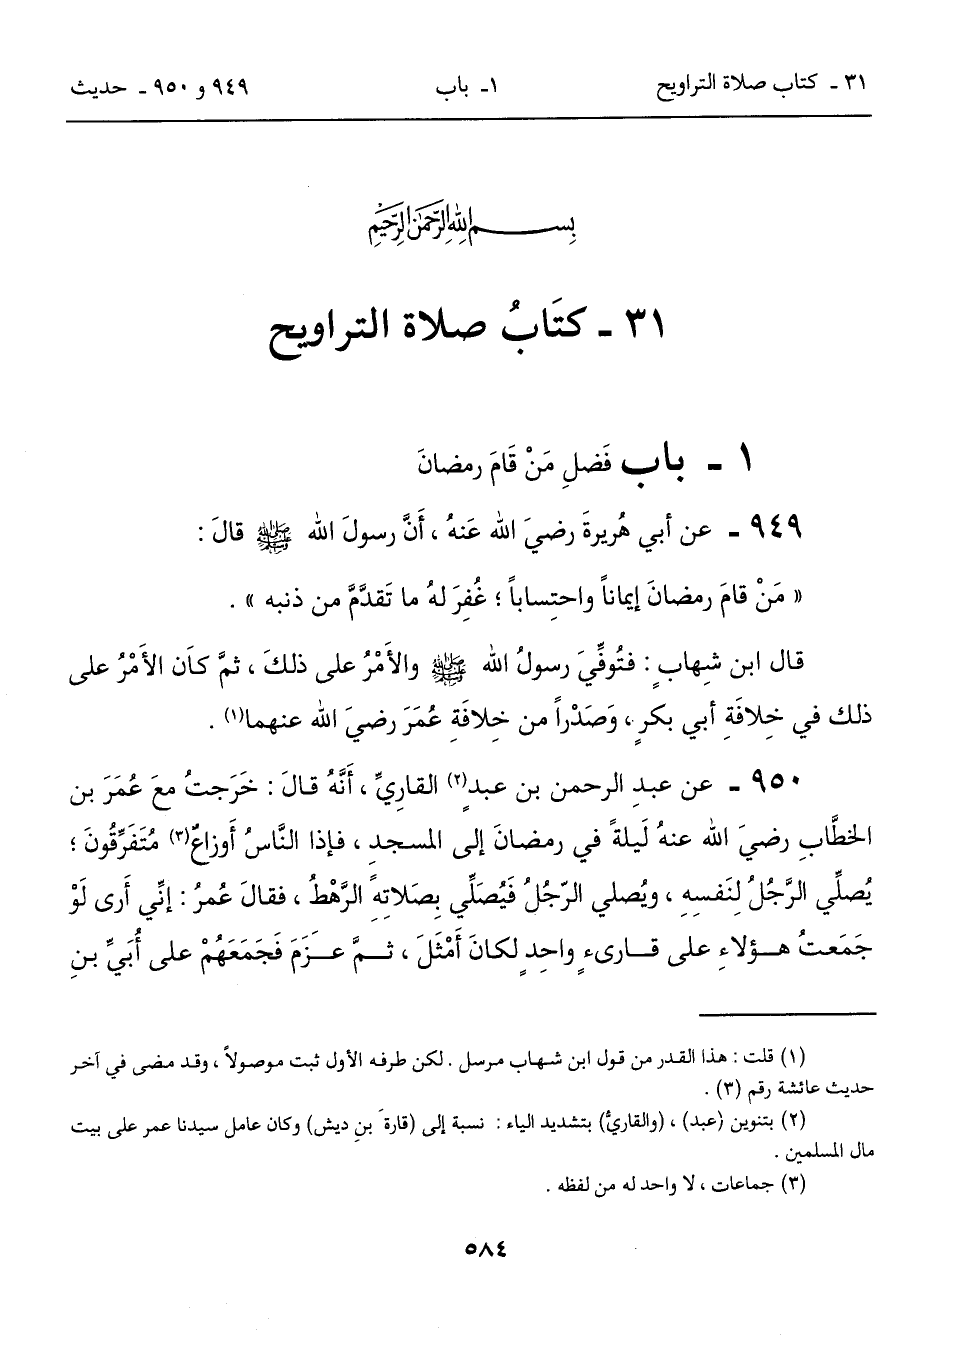 ٣١ ـ كتاب صلاة التراويح ١ـ باب ٩٤٩ و ٩٥٠ ـ حديث
بسم الله الرحمن الرحيم
٣١ ـ كتَابُ صلاة التراويح
١ ـ باب فَضلِ مَنْ قَامَ رمضانَ
٩٤٩ ـ عن أبي هُريرةَ رضيَ الله عَنهُ ، أَنَّ رسولَ الله ﷺ قالَ :
« مَنْ قامَ رمضانَ إيماناً واحتِساباً ؛ غُفِرَ لهُ ما تَقدَّمَ من ذنبه » .
قال ابن شِهابٍ : فتُوفِّيَ رسولُ الله ﷺ والأَمْرُ على ذلكَ ، ثمَّ كان الأَمْرُ على
ذلك في خِلافَةِ أبي بكرٍ ، وَصَدْراً من خِلافَةِ عُمَرَ رضيَ الله عنهما(١) .
٩٥٠ ـ عن عبدِ الرحمن بن عبدٍ(٢) القاريِّ ، أَنَّهُ قالَ : خَرَجتُ معَ عُمَرَ بن
الخطَّابِ رضيَ الله عنهُ لَيلةً في رمضانَ إلى المسجدِ ، فإذا النَّاسُ أَوزاعٌ(٣) مُتَفَرِّقُونَ ؛
يُصلِّي الرَّجُلُ لنَفسِهِ ، ويُصلي الرّجُلُ فَيُصَلِّي بِصَلاتِهِ الرَّهْطُ ، فقالَ عُمرُ : إنِّي أَرى لَوْ
جَمَعتُ هؤلاءِ على قارىءٍ واحِدٍ لكانَ أَمْثَلَ ، ثمَّ عَزَمَ فَجَمَعَهُمْ على أُبَيِّ بنِ
(١) قلت : هذا القدر من قول ابن شهاب مرسل . لكن طرفه الأول ثبت موصولاً ، وقد مضى في آخر
حديث عائشة رقم (٣) .
(٢) بتنوين (عبد) ، (والقاريُّ) بتشديد الياء : نسبة إلى (قارةَ بنِ ديش) وكان عامل سيدنا عمر على بيت
مال المسلمين .
(٣) جماعات ، لا واحد له من لفظه .
٥٨٤